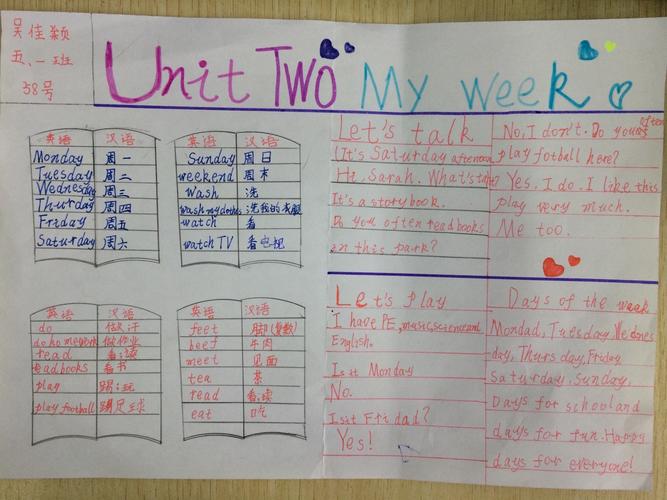 吴佳颖
五.一班
38号
Unit Two My week
英语 汉语
Monday 周一
Tuesday 周二
Wednesday 周三
Thurday 周四
Friday 周五
Saturday 周六
英语 汉语
Sunday 周日
weekend 周末
wash 洗
wash my clothes 洗我的衣服
watch 看
watch TV 看电视
英语 汉语
do 做;干
do homework 做作业
read 看;读
readbooks 看书
play 踢;玩
play football 踢足球
英语 汉语
feet 脚(复数)
beef 牛肉
meet 见面
tea 茶
read 看;读
eat 吃
Let's talk
(It's Saturday afternoon.
Hi, Sarah. What's
It's a storybook.
Do you often read books
in this park?
No, I don't. Do you often
play fotball here?
Yes, I do. I like this
play very much.
Me too.
Let's play
I have PE, music, science and
English.
Is it Monday
No.
Is it Fridad?
Yes!
Days of the week
Mondad, Tuesday, Wednes
day, Thursday, Friday
Saturday, Sunday.
Days for school and
days for fun. Happy
days for everyone!